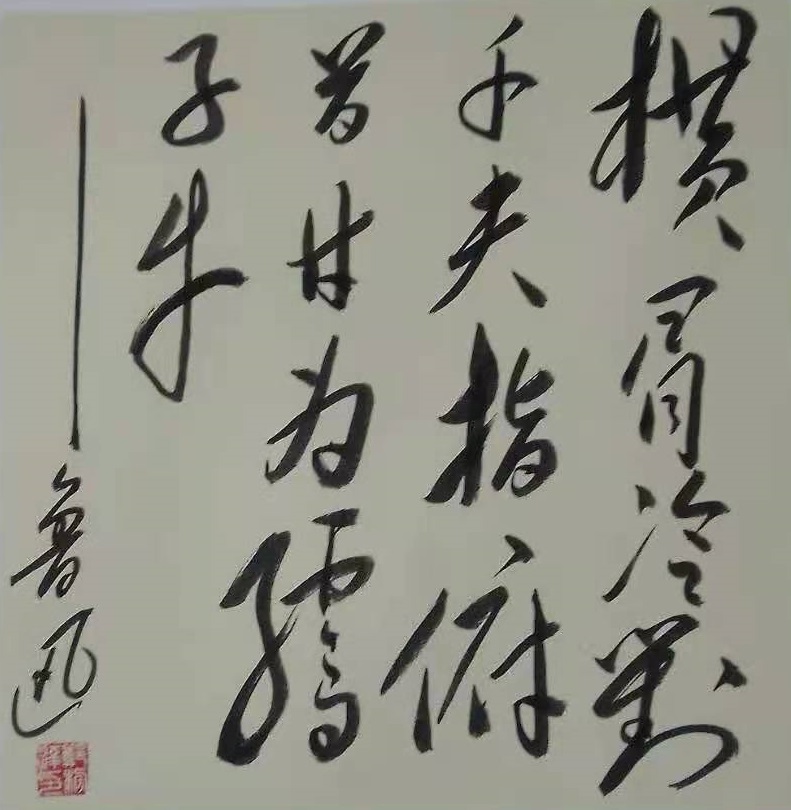 横眉冷對
千夫指俯
首甘为孺
子牛
——鲁迅